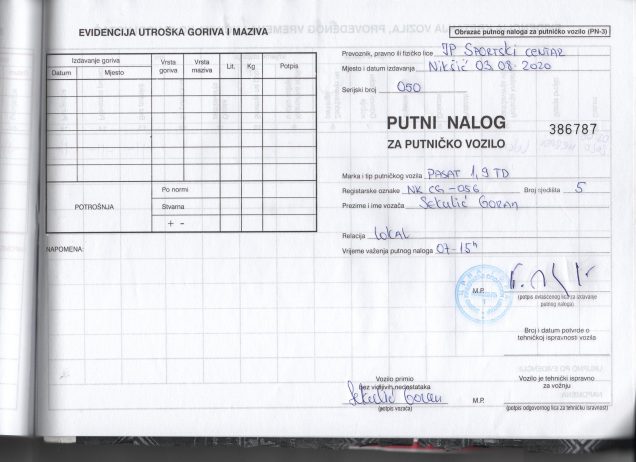 EVIDENCIJA UTROŠKA GORIVA I MAZIVA
Izdavanje goriva
Datum
Mjesto
Vrsta goriva
Vrsta maziva
Lit.
Kg
Potpis
POTROŠNJA
Po normi
Stvarna
+ -
NAPOMENA:
Obrazac putnog naloga za putničko vozilo (PN-3)
Prevoznik, pravno ili fizičko lice JP SPORTSKI CENTAR
Mjesto i datum izdavanja Nikšić 03.08.2020
Serijski broj 050
PUTNI NALOG
386787
ZA PUTNIČKO VOZILO
Marka i tip putničkog vozila PASAT 1,9 TD
Registarske oznake NK CG-056 Broj sjedišta 5
Prezime i ime vozača Sekulić Goran
Relacija LOKAL
Vrijeme važenja putnog naloga 07-15h
M.P.
(potpis ovlašćenog lica za izdavanje
putnog naloga)
Broj i datum potvrde o
tehničkoj ispravnosti vozila
Vozilo primio
bez vidljivih nedostataka
Sekulić Goran
(potpis vozača)
M.P.
Vozilo je tehnički ispravno
za vožnju
(potpis odgovornog lica za tehničku ispravnost)